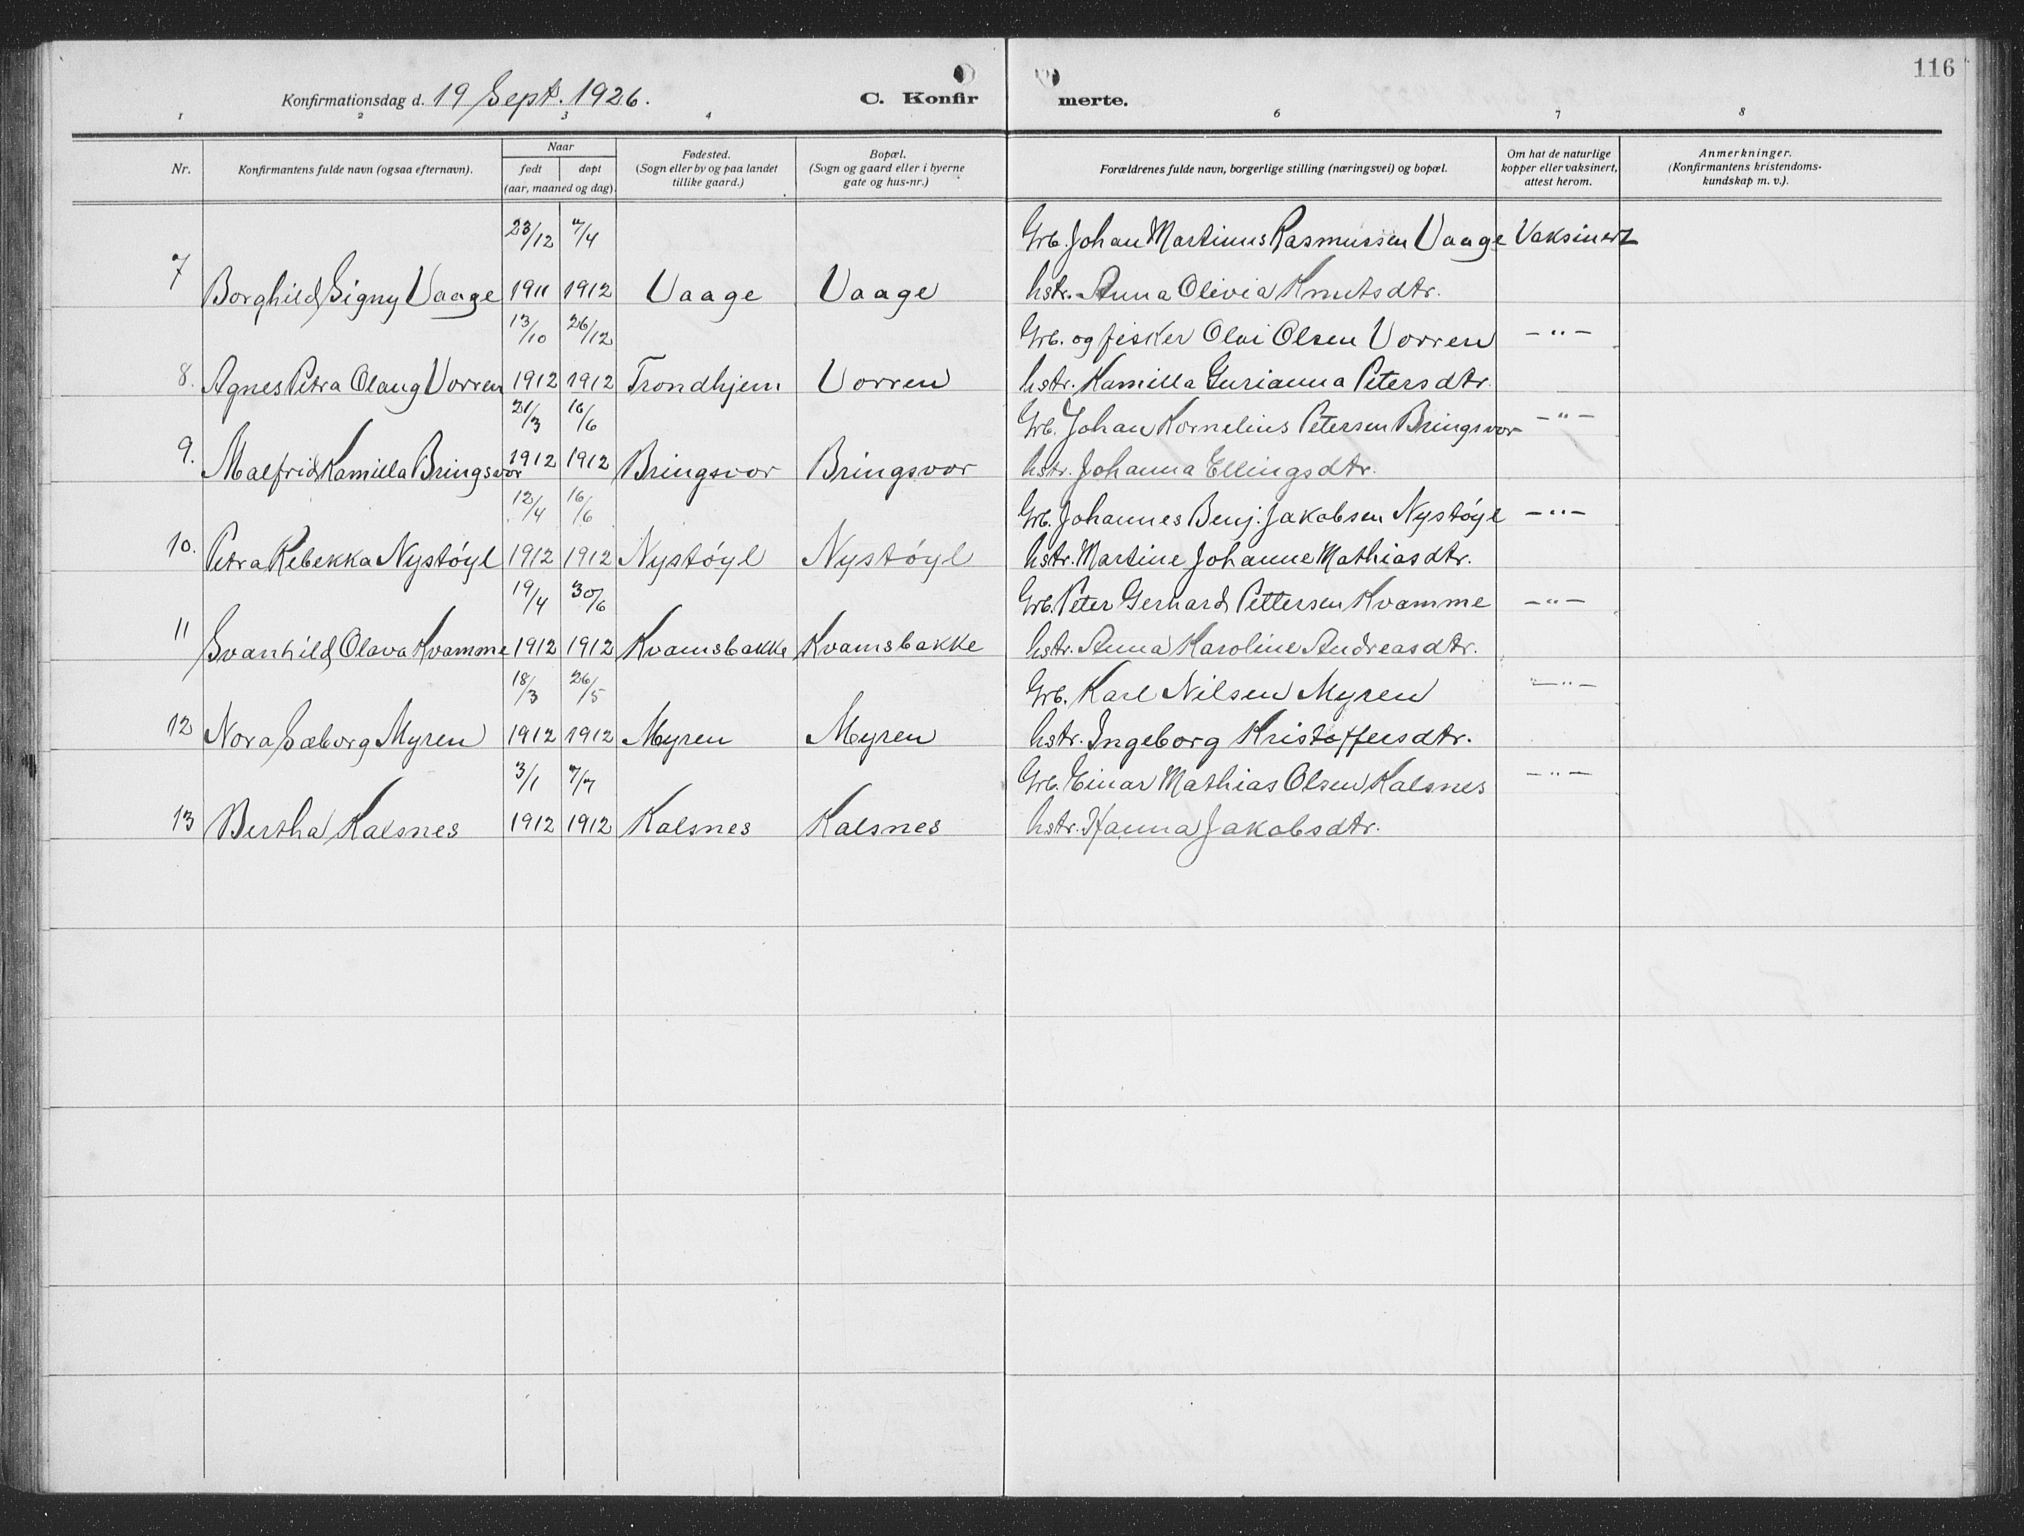 116
Konfirmationsdag d. 19 Sept. 1926. C. Konfirmerte.
1 2 3 4 6 7 8
Nr. Konfirmantens fulde navn (ogsaa efternavn). Naar født døpt (aar, maaned og dag). Fødested. (Sogn eller by og paa landet tillike gaard.) Bopæl. (Sogn og gaard eller i byerne gate og hus-nr.) Forældrenes fulde navn, borgerlige stilling (næringsvei) og bopæl. Om hat de naturlige kopper eller vaksinert, attest herom. Anmerkninger. (Konfirmantens kristendoms-kundskap m. v.).
23/12 7/4 Grb. Johan Martinus Rasmussen Vaage Vaksinert
7 Borghild Signy Vaage 1911 1912 Vaage Vaage hstr. Anna Olivia Knutsdtr.
13/10 26/12 Grb. og fisker Olai Olsen Vorren -"-
8. Agnes Petra Olaug Vorren 1912 1912 Trondhjem Vorren hstr. Kamilla Gurianna Petersdtr.
21/3 16/6 Grb. Johan Kornelius Petersen Bringsvor -"-
9. Malfrid Kamilla Bringsvor 1912 1912 Bringsvor Bringsvor hstr. Johanna Ellingsdtr.
12/4 16/6 Grb. Johannes Benj. Jakobsen Nystøyl -"-
10. Petra Rebekka Nystøyl 1912 1912 Nystøyl Nystøyl hstr. Martine Johanne Mathiasdtr.
19/4 30/6 Grb. Peter Gerhard Pettersen Kvamme -"-
11 Svanhild Olava Kvamme 1912 1912 Kvamsbakke Kvamsbakke hstr. Anna Karoline Andreasdtr.
18/3 26/5 Grb. Karl Nilsen Myren -"-
12 Nora Sæborg Myren 1912 1912 Myren Myren hstr. Ingeborg Kristoffersdtr.
3/1 7/7 Grb. Einar Mathias Olsen Kalsnes -"-
13 Bertha Kalsnes 1912 1912 Kalsnes Kalsnes hstr. Hanna Jakobsdtr.